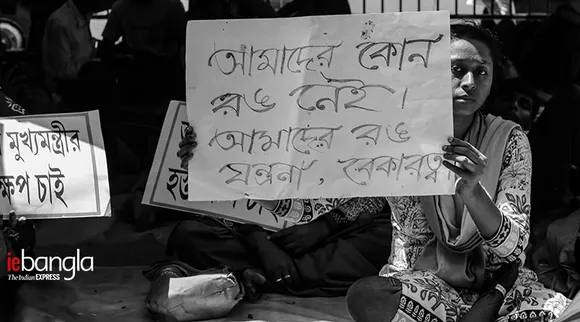 আমাদের কোন
রঙ নেই।
আমাদের রঙ
যন্ত্রনা, বেকারত্ব
মুখ্যমন্ত্রীর
ক্ষেপ চাই
iebangla
The Indian EXPRESS